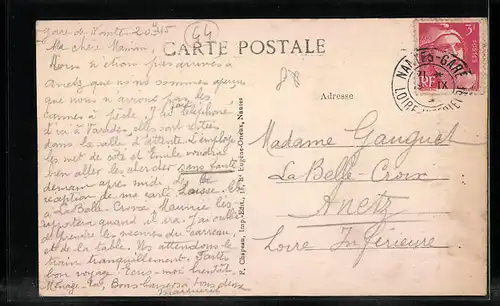 Gare de Nantes 20 / 9 45
44
Ma chère Maman,
CARTE POSTALE
Nous n'étions pas arrivés à
Anetz que nous nous sommes aperçus
que nous n'avions pas les
cannes à pêche. J'ai téléphoné
d'ici à Varades, elles sont restées
dans la salle d'attente. L'employé
les met de côté et Emile voudrait
bien aller les chercher sans faute
demain après midi
réception de ma carte. Laisse les
à La Belle-Croix, Maurice les
quand il ira. J'ai oublié
de prendre les mesures du carreau,
et de la table. Nous attendons le
train tranquillement. Faites
bon voyage. Ecris-moi bientôt.
Ménage-toi, Bons baisers à tous deux
F. Chapeau, Imp.-Edit., Nantes
Adresse
Madame Gauguet
La Belle-Croix
Anetz
Loire Inférieure
NANTES-GARE
LOIRE-INFERIEURE
POSTES
3F
RF